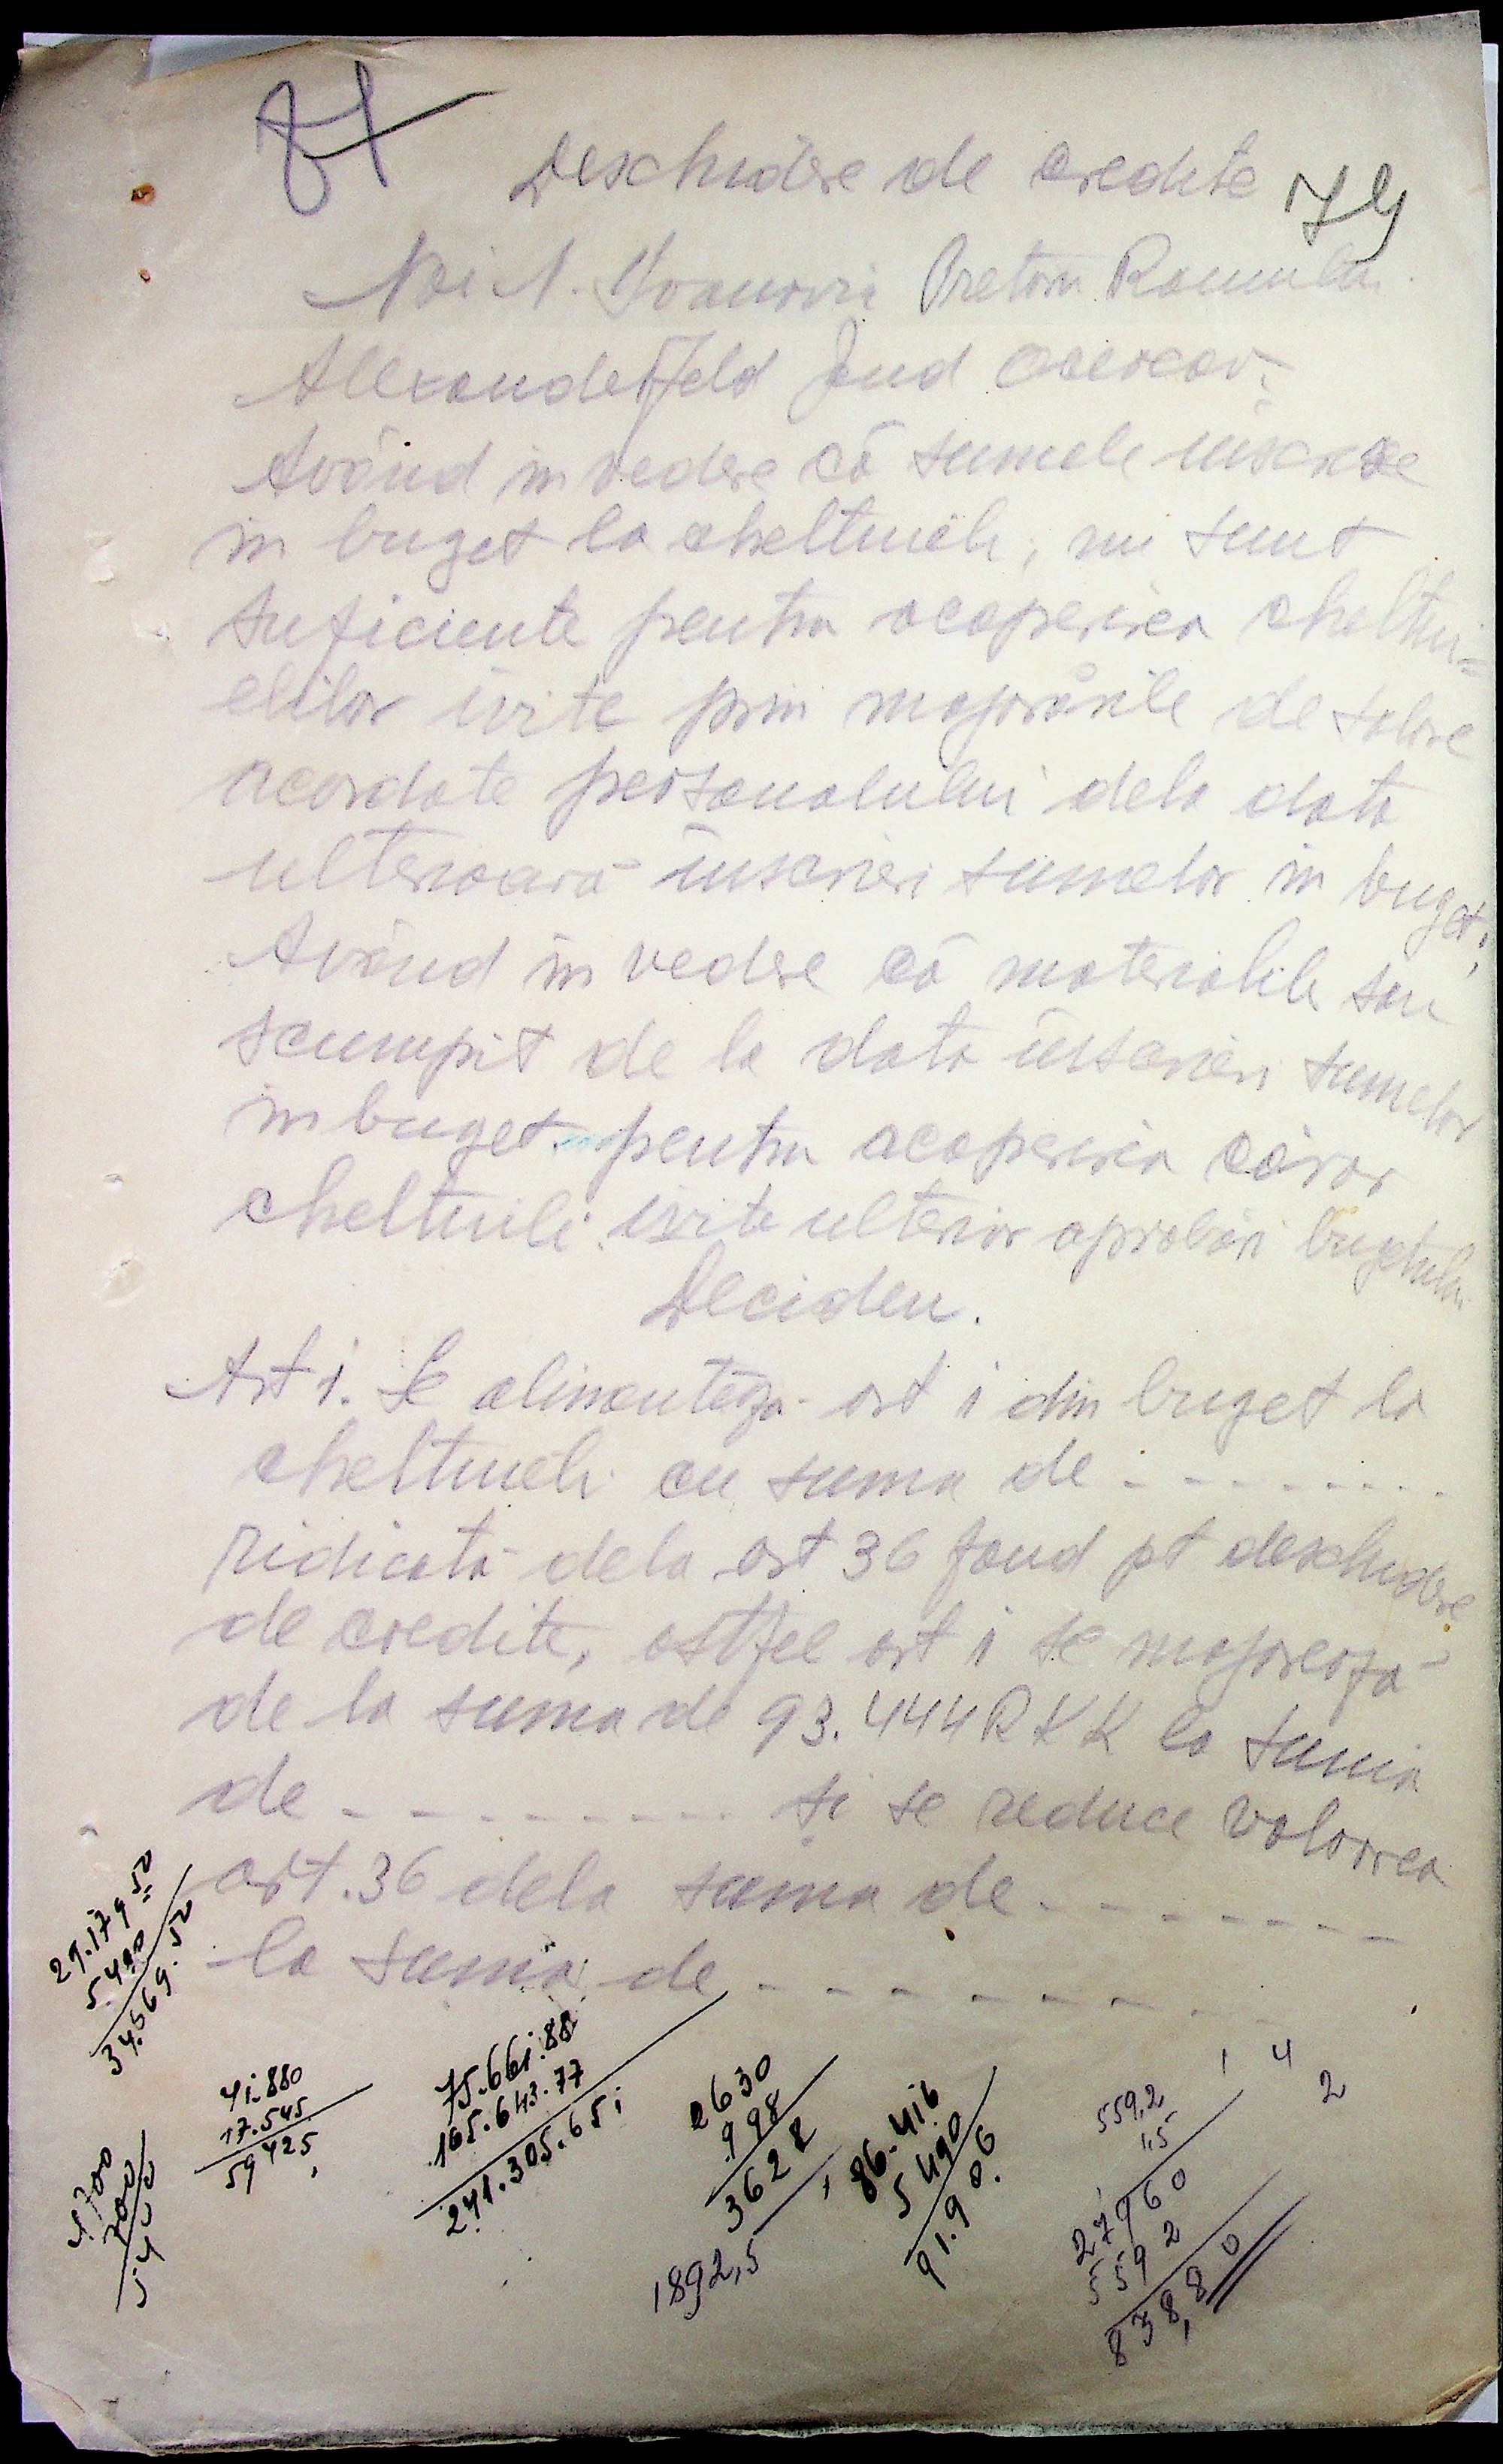 Deschidere de credite 79
Noi N. Pretorul Romulus
Alexanderfeld Jud Oceacov.
Având in vedere că sumele inscrise
in buget la cheltueli, nu sunt
suficiente pentru acoperirea cheltui=
elilor ivite prin majorările de solare
acordate personalului dela data
ulterioară inscrieri sumelor in buget;
Având in vedere că materialele sau
scumpit de la data inscrieri sumelor
in buget pentru acoperirea căror
cheltuili ivite ulterior aprobări bugetului
Decidem.
Art 1. Se alimentează art 1 din buget la
cheltueli cu suma de - - - - - - - -
ridicată dela art 36 fond pt deschidere
de credite, astfel art 1 se majorează
de la suma de 93.444 RKK la suma
de - - - - - - - - - si se reduce valoarea
art. 36 dela suma de - - - - - - - -
la suma de - - - - - - - - -
29.179 50
5490
34.569.50
41.880
17.545
59425
4700
700
5400
75.661.88
165.643.77
241.305.65
2630
998
3628
1892,5
86.416
5490
91.906
1 4 2
559,2
1,5
27960
5592
838,80